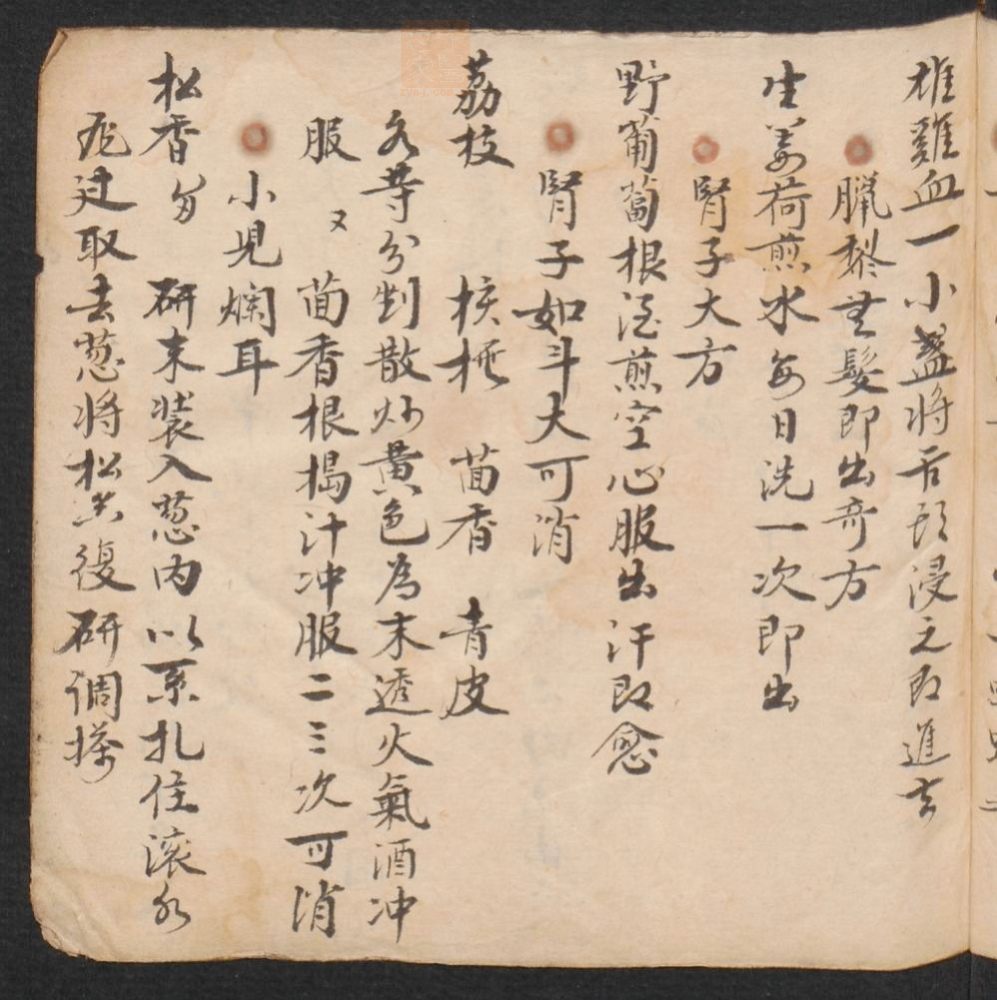 雄雞血一小盞將舌頭浸之即進去
臘梨無髮即出奇方
生姜荷煎水每日洗一次即出
腎子大方
野葡萄根酒煎空心服出汗即愈
腎子如斗大可消
荔枝 核 茴香 青皮
各等分剉散炒黃色為末透火氣酒冲
服 又 茴香根搗汁冲服二三次可消
小兒爛耳
松香 研末裝入葱內以系扎住滾水
過取去葱將松香復研調搽